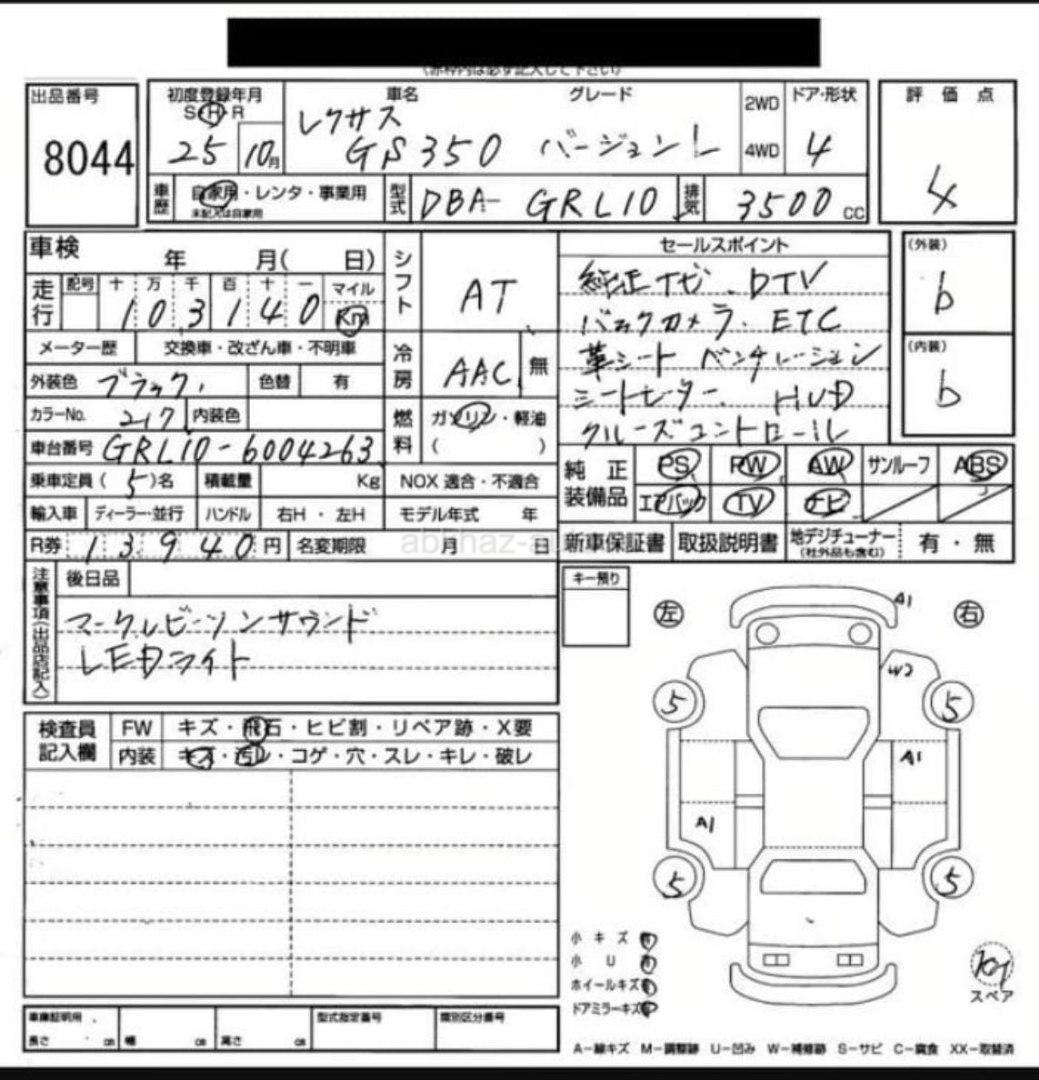 (赤枠内は必ず記入して下さい)
出品番号
8044
初度登録年月
S・H・R
25 10月
車名 グレード
レクサス
GS350 バージョンL
2WD
4WD
ドア・形状
4
評価点
4
車歴
自家用・レンタ・事業用
未記入は自家用
型式
DBA-GRL10
排気
3500 CC
車検 年 月( 日)
走行
記号 十 万 千 百 十 一
103140
マイル
Km
シフト
AT
セールスポイント
純正ナビ、DTV
バックカメラ、ETC
革シート ベンチレーション
シートヒーター、HUD
クルーズコントロール
(外装)
b
(内装)
b
メーター歴 交換車・改ざん車・不明車
冷房
AAC 無
外装色 ブラック 色替 有
カラーNo. 217 内装色
燃料
ガソリン・軽油
( )
車台番号 GRL10-6004263
乗車定員 (5)名 積載量 Kg NOX 適合・不適合
純正装備品
PS PW AW サンルーフ ABS
エアバック TV ナビ
輸入車 ディーラー・並行 ハンドル 右H・左H モデル年式 年
R券 13940円 名変期限 月 日
新車保証書 取扱説明書 地デジチューナー(社外品も含む) 有・無
注意事項(出品店記入)
後日品
マークレビンソンサウンド
LEDライト
キー預り
左 右
A1
W2
5 5
A1
A1
5 5
検査員記入欄
FW キズ・飛石・ヒビ割・リペア跡・X要
内装 キズ・汚レ・コゲ・穴・スレ・キレ・破レ
小キズ有
小U有
ホイールキズ有
ドアミラーキズ有
スペア
車庫証明用
長さ cm 幅 cm 高さ cm
型式指定番号
類別区分番号
A-線キズ M-調整跡 U-凹み W-補修跡 S-サビ C-腐食 XX-取替済